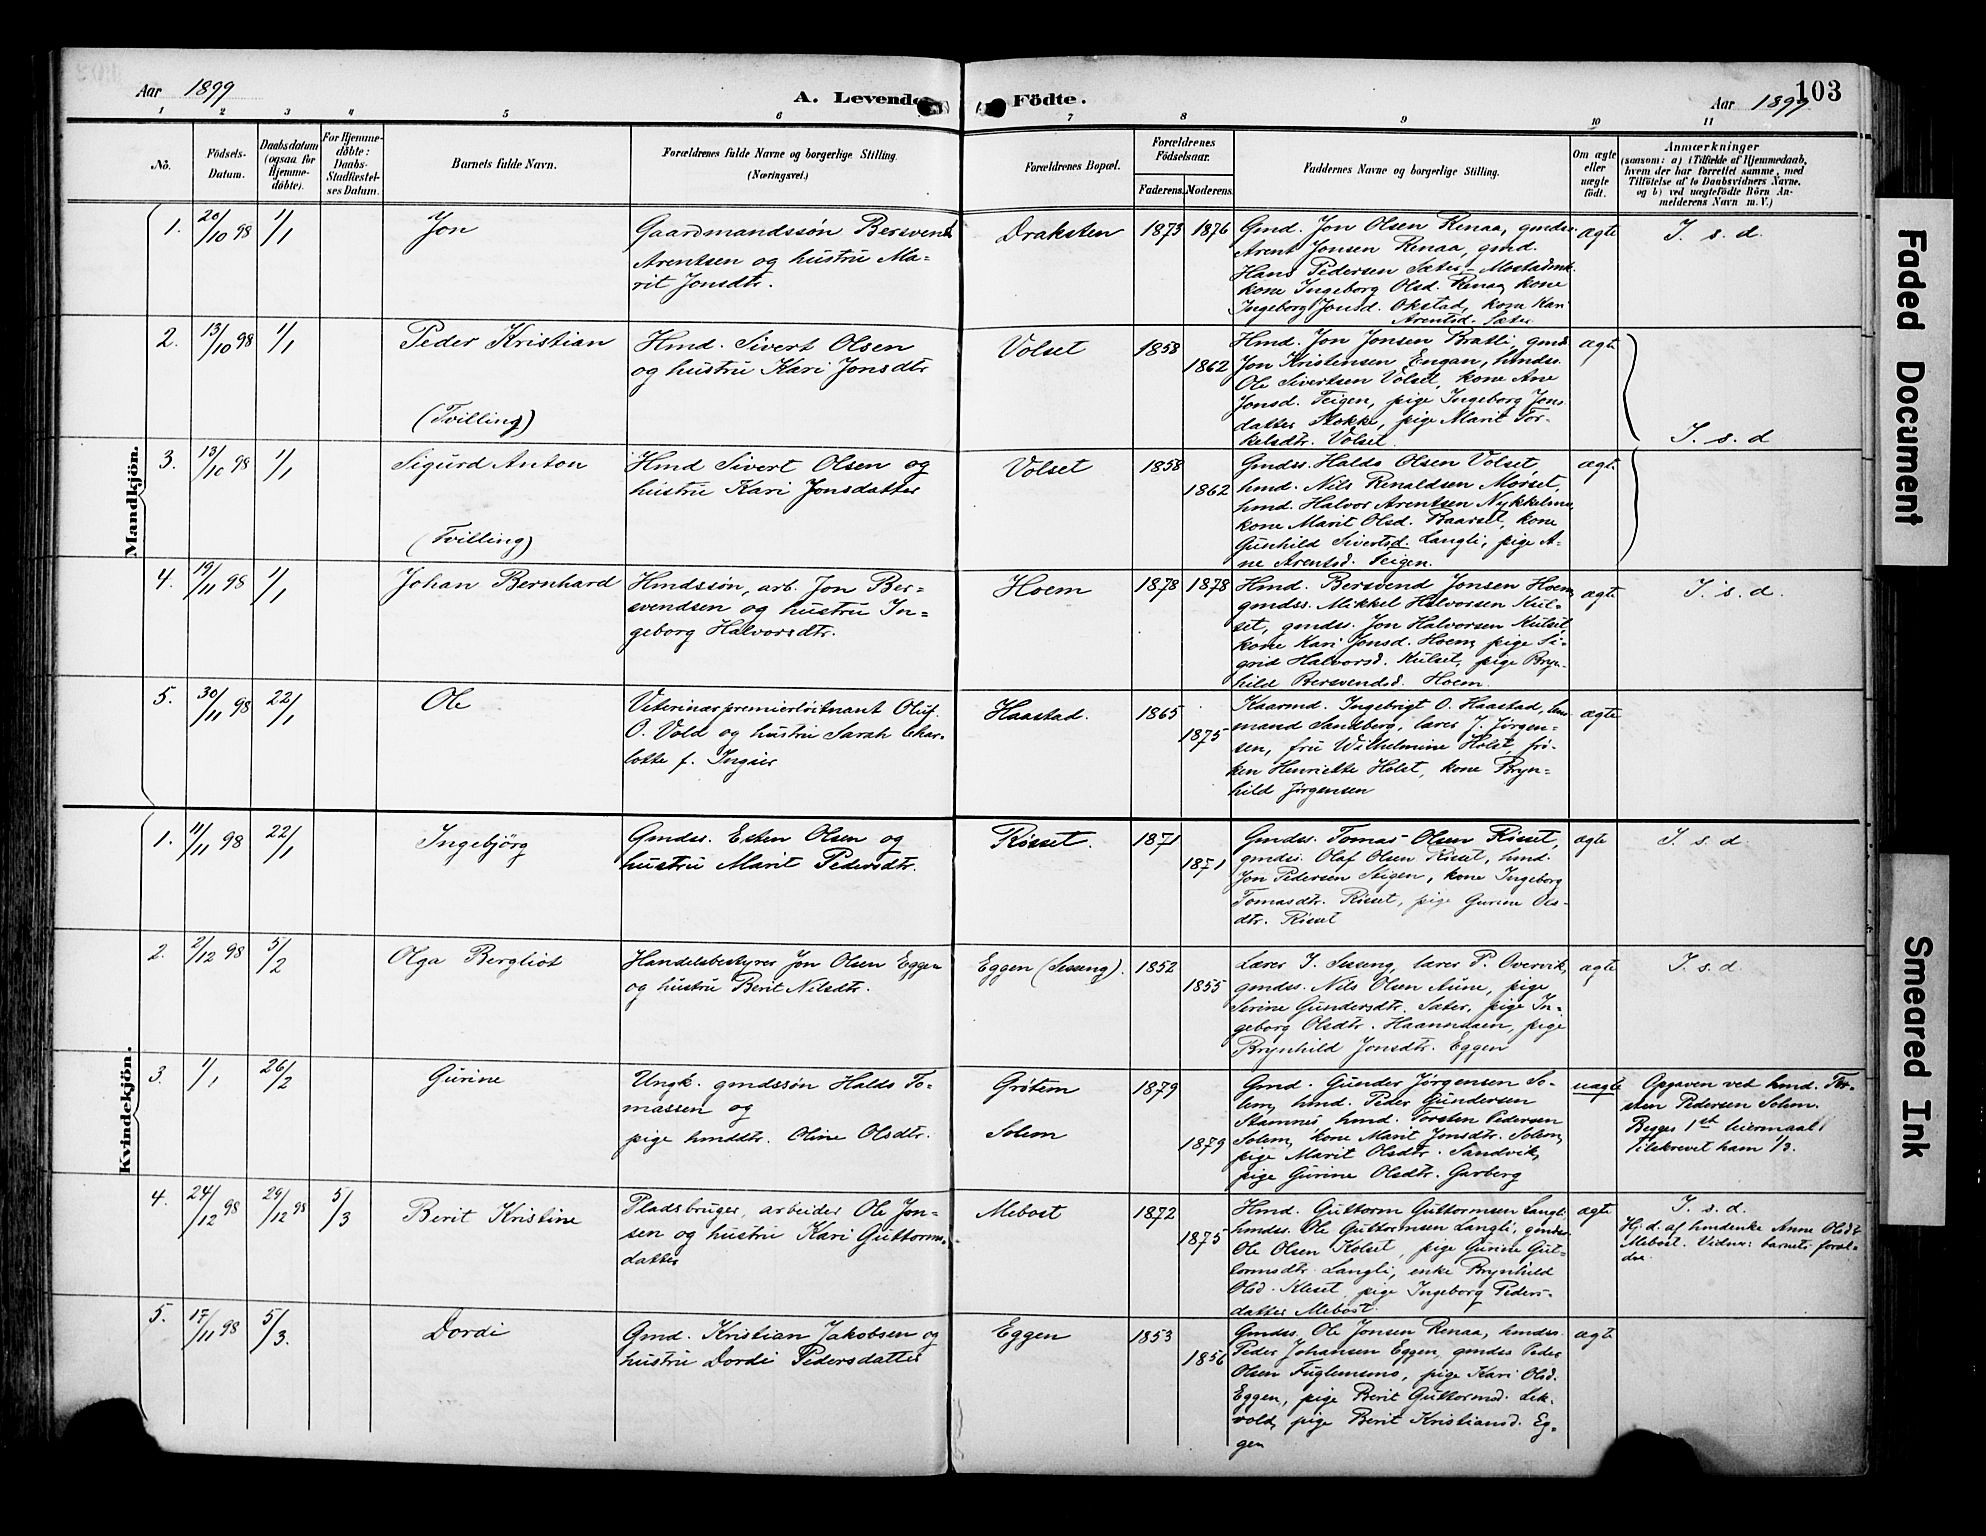 Aar 1899
A. Levende Födte.
Aar 1899
103
1 2 3 4 5 6 7 8 9 10 11
No.
Födsels-Datum.
Daabsdatum (ogsaa for Hjemmedöbte).
For Hjemmedöbte: Daabs-Stadfæstelses Datum.
Barnets fulde Navn.
Forældrenes fulde Navne og borgerlige Stilling. (Næringsvei.)
Forældrenes Bopæl.
Forældrenes Födselsaar.
Faderens. Moderens.
Faddernes Navne og borgerlige Stilling.
Om ægte eller uægte födt.
Anmærkninger
(saasom: a) i Tilfælde af Hjemmedaab,
hvem der har forrettet samme, med
Tilföielse af to Daabsvidners Navne,
og b) ved uægtefödte Börn An-
melderens Navn m. V.)
Mandkjön.
1. 20/10 98 1/1 Jon
Gaardmandssøn Bersvend
Arentsen og hustru Ma=
rit Jonsdtr.
Draksten 1873 1876
Gmd. Jon Olsen Renaa, gmdss.
Arent Jonsen Renaa, gmd.
Hans Pedersen Sæter-Mostadmk.
kone Ingeborg Olsd. Renaa, kone
Ingeborg Jonsd. Okstad, kone Kari
Arentsd. Sæter
ægte I. s. d.
2. 13/10 98 1/1 Peder Kristian
(Tvilling)
Hmd. Sivert Olsen
og hustru Kari Jonsdtr
Volset 1858 1862
Hmd. Jon Jonsen Bratli, gmds
Jon Kristensen Engan, hmdss.
Ole Sivertsen Volset, kone Ane
Jonsd. Teigen, pige Ingeborg Jons
datter Stokke, pige Marit Tor-
kelsdtr. Volset.
ægte I. s. d
3. 13/10 98 1/1 Sigurd Anton
(Tvilling)
Hmd Sivert Olsen og
hustru Kari Jonsdatter
Volset 1858 1862
Gmdss. Haldo Olsen Volset,
hmd. Nils Renaldsen Morset,
hmd. Halvor Arentsen Nykkelmo
kone Marit Olsd. Baarset, kone
Gunhild Sivertsd. Langli, pige A-
ne Arentsd. Teigen.
ægte
4. 19/11 98 1/1 Johan Bernhard
Hmdssøn, arb. Jon Ber=
svendsen og hustru In=
geborg Halvorsdtr.
Hoem 1878 1878
Hmd. Bersvend Jonsen Hoem,
gmdss. Mikkel Halvorsen Kul-
set, gmdss. Jon Halvorsen Kulset,
kone Kari Jonsd. Hoem, pige Si-
grid Halvorsd. Kulset, pige Bryn-
hild Bersvendsd. Hoem.
ægte I. s. d.
5. 30/11 98 22/1 Ole
Veterinærpremierløitnant Oluf
O. Vold og hustru Sarah Char-
lotte f. Ingier
Haastad. 1865 1875
Kaarmd. Ingebrigt O. Haastad, lens
mand Sandberg, lærer J. Jørgen-
sen, fru Wilhelmine Holst, frø-
ken Henriette Holst, kone Bryn=
hild Jørgensen
ægte
Kvindekjön.
1. 11/11 98 22/1 Ingebjörg
Gmdss. Esten Olsen og
hustru Marit Pedersdtr.
Røsset. 1871 1871
Gmdss. Tomas Olsen Risset,
gmdss. Olaf Olsen Risset, hmd.
Jon Pedersen Stigen, kone Ingeborg
Tomasdtr. Risset, pige Gurine Ols-
dtr. Risset
ægte I. s. d.
2. 2/12 98 5/2 Olga Bergliot
Handelsbestyrer Jon Olsen Eggen
og hustru Berit Nilsdtr.
Eggen (Sesseng). 1852 1855
Lærer I. Sesseng, lærer P. Overvik,
gmdss. Nils Olsen Aune, pige
Serine Gundersdtr. Sæter, pige In-
geborg Olsdtr. Haanndaen, pige
Brynhild Jonsdtr. Eggen
ægte I. s. d.
3. 1/1 26/2 Gurine
Ungk. gmdssøn Haldo To-
massen og
pige hmddtr. Oline Olsdtr.
Grøtem
Solem 1879 1879
Gmd. Gunder Jørgensen So-
lem, hmd. Peder Gundersen
Stamnes hmd. Torsten Pedersen
Solem, kone Marit Jonsdtr. Solem,
pige Marit Olsdtr. Sandvik,
pige Gurine Olsdtr. Garberg
uægte
Opgaven ved hmd. Tor-
sten Pedersen Solem.
Begges 1ste leiermaal
Tilskrevet ham 1/3.
4. 24/12 98 29/12 98 5/3 Berit Kristine
Pladsbruger, arbeider Ole Jon-
sen og hustru Kari Guttorms-
datter
Mebost 1872 1875
Hmd. Guttorm Guttormsen Langli
hmdss. Ole Guttormsen Langli, gmdss
Ole Olsen Kolset, pige Gurine Gut-
tormsdtr. Langli, enke Brynhild
Olsd. Kleset, pige Ingeborg Peders-
datter Mebost.
ægte I. s. d.
Hj. d. af hmdenke Anne Olsdt
Mebost. Vidner: barnets foræl-
dre.
5. 17/11 98 5/3. Dordi
Gmd. Kristian Jakobsen og
hustru Dordi Pedersdatter
Eggen 1853 1856
Gmdss. Ole Jonsen Renaa, hmdss.
Peder Johansen Eggen, gmdss Peder
Olsen Fuglemsmo, pige Kari Olsd.
Eggen, pige Berit Guttormsd. Lek-
vold, pige Berit Kristiansd. Eg-
gen
ægte
Faded Document
Smeared Ink